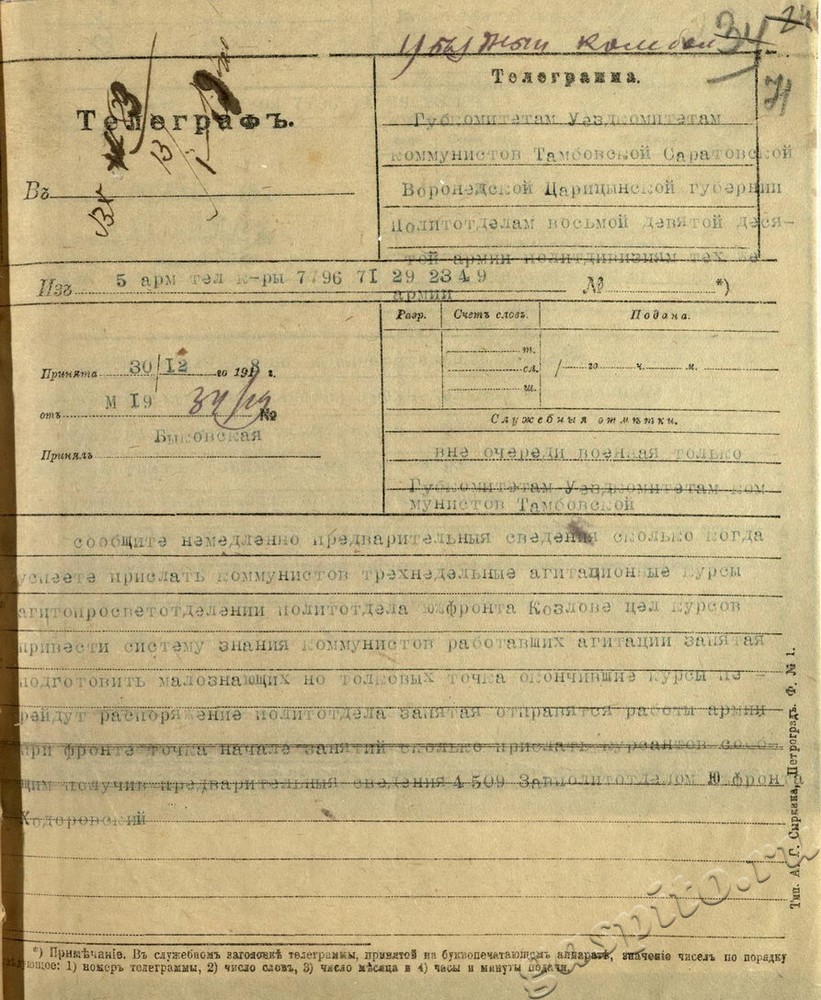 34 24
Телеграфъ.
Телеграмма.
Губкомитетам Уездкомитетам
коммунистов Тамбовской Саратовской
Воронедской Царицынской губернии
Политотделам восьмой девятой деся-
той армии политдивизиям тех же
армии
Въ
Изъ 5 арм тел к-ры 7796 71 29 23 4 9 № *)
Разр. Счетъ словъ. Подана.
т.
сл.
ш.
/ го ч. м.
Принята 30/12 го 1918 г.
отъ М 19 №
Принялъ Быковская
Служебныя отмѣтки.
вне очереди военная только
Губкомитетам Уездкомитетам ком
мунистов Тамбовской
сообщите немедленно предварительныя сведения сколько когда
успеете прислать коммунистов трехнедельные агитационные курсы
агитопросветотделении политотдела южфронта Козлове цел курсов
привести систему знания коммунистов работавших агитации занятая
подготовить малознающих но толковых точка окончившие курсы пе -
рейдут распоряжение политотдела занятая отправятся работы армии
при фронте точка начале занятий сколько прислать курсантов сооб-
щим получив предварительныя сведения 4509 Завполитотделом Ю фронта
Ходоровский
Тип. А. Г. Сыркина, Петроградъ. Ф. № 1.
*) Примѣчаніе. Въ служебномъ заголовкѣ телеграммы, принятой на буквопечатающемъ аппаратѣ, значеніе чиселъ по порядку
слѣдующое: 1) номеръ телеграммы, 2) число словъ, 3) число мѣсяца и 4) часы и минуты подачи.
gaspito.ru